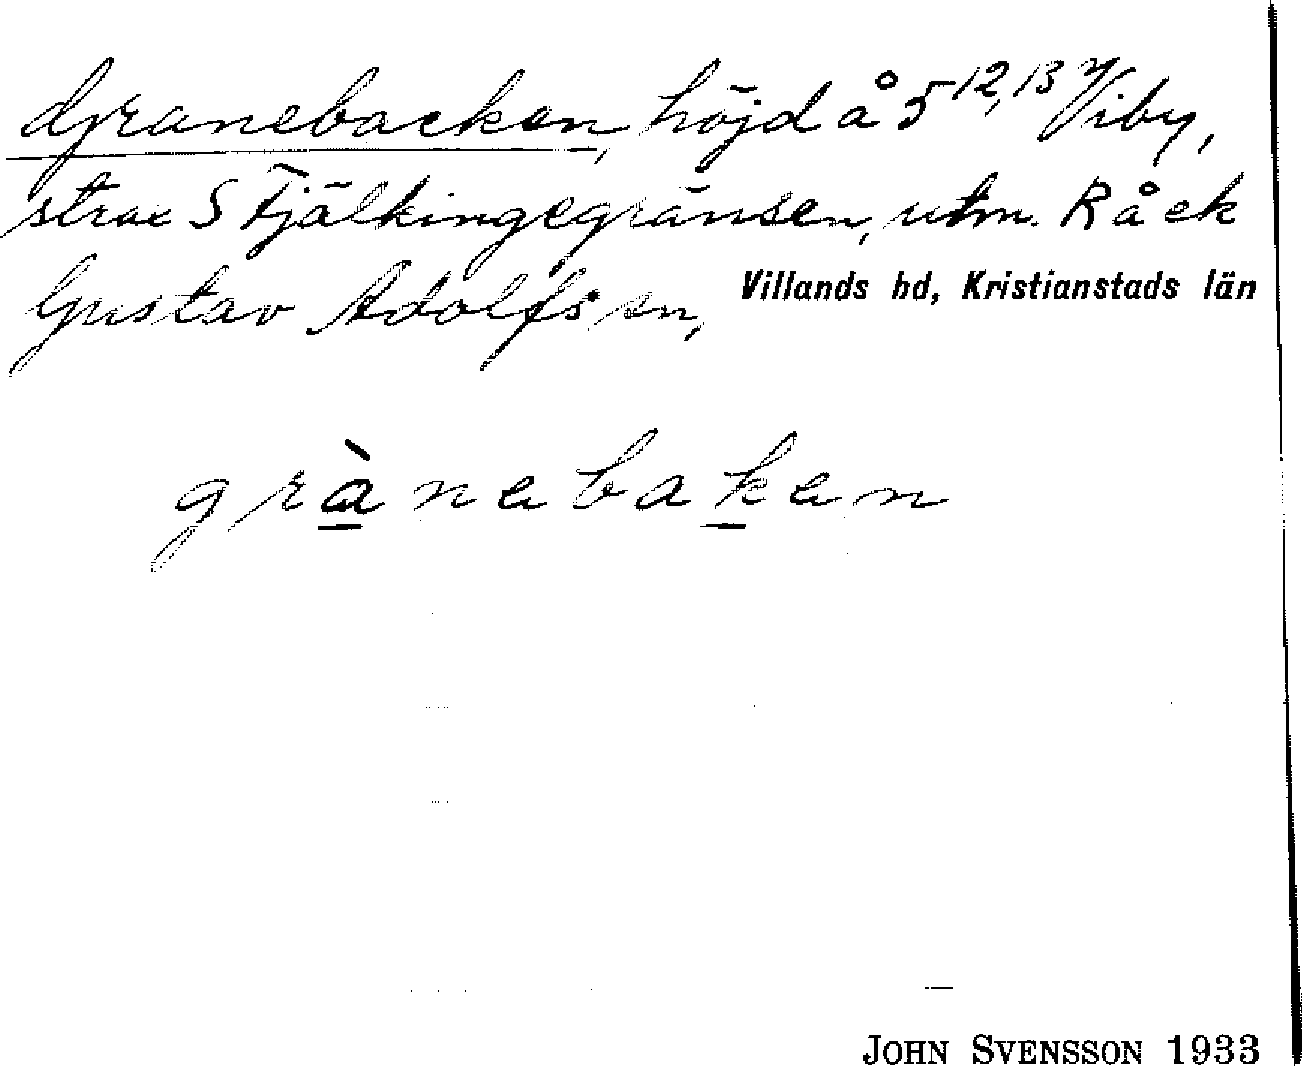 Granebacken, höjd å 5 12,13 Viby,
strax S Fjälkingegränsen, utm. Råck
Gustav Adolfs sn,
Villands hd, Kristianstads län
grànebaken
JOHN SVENSSON 1933